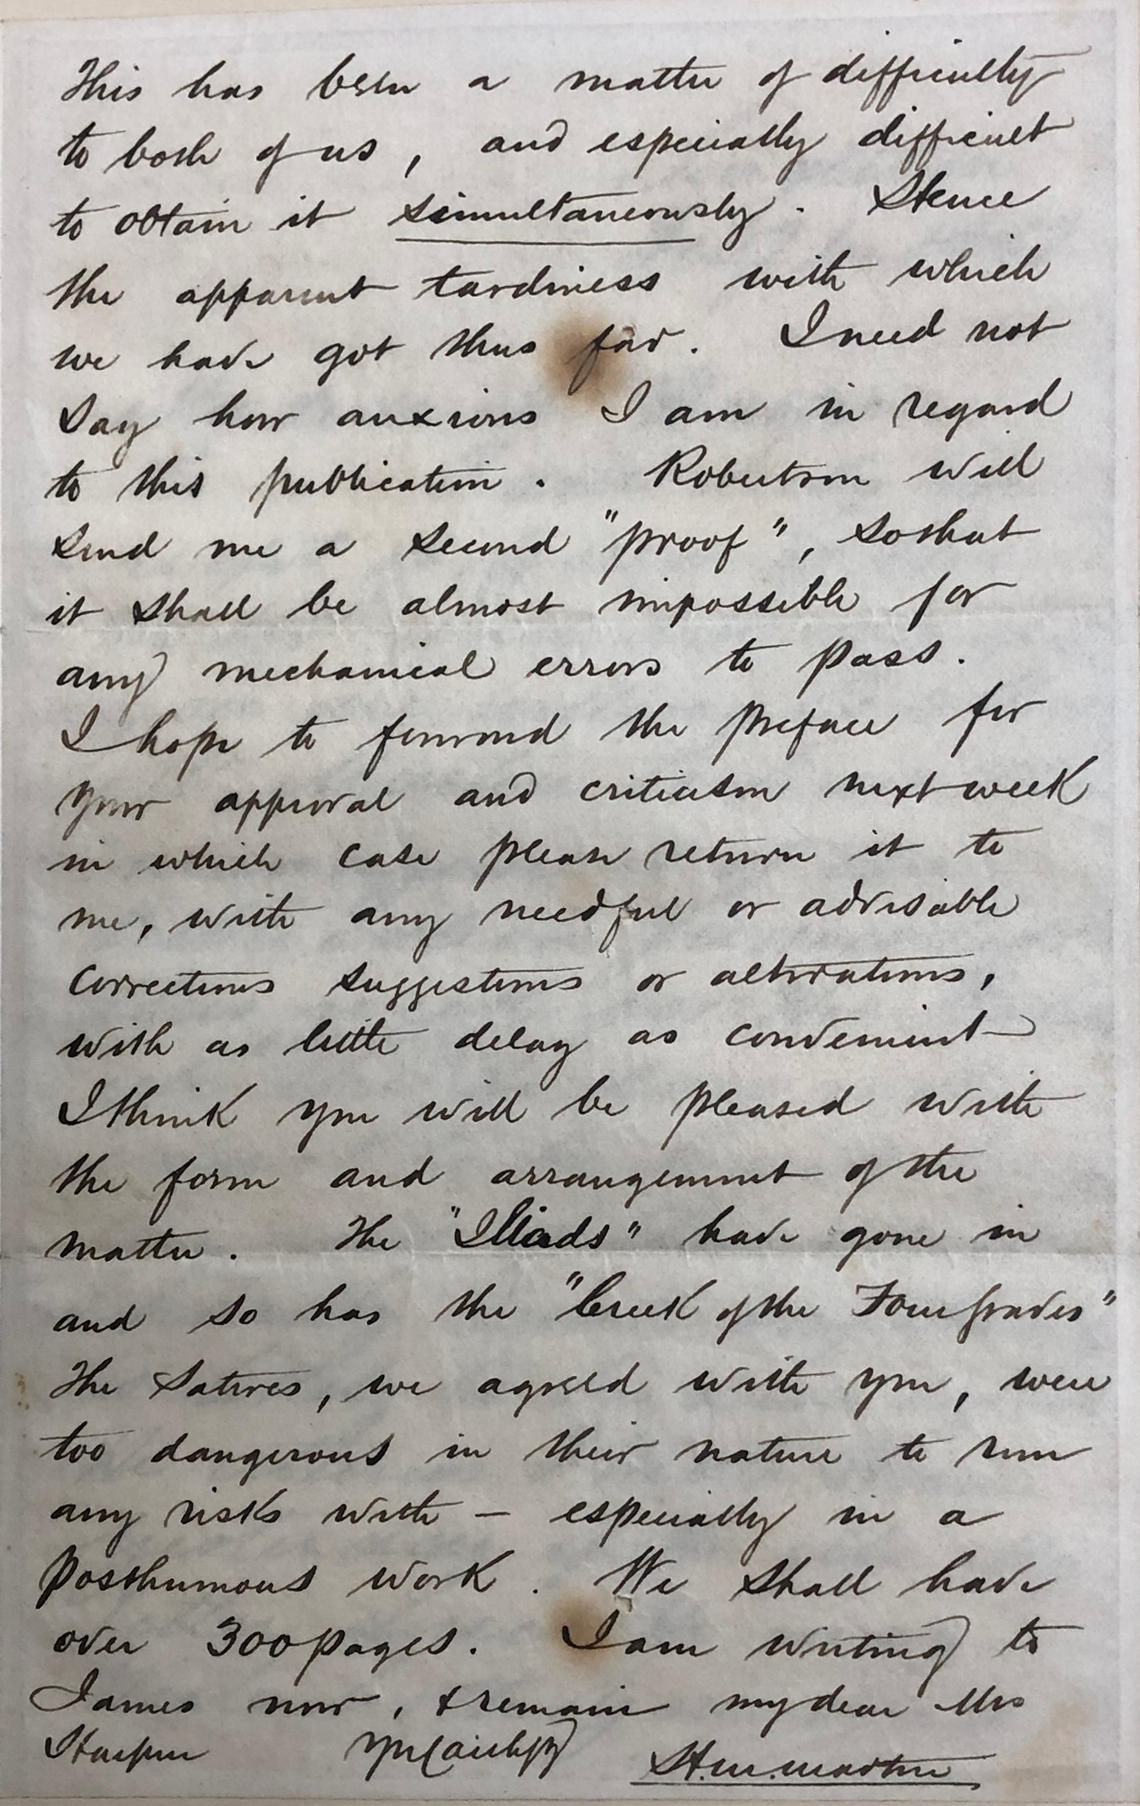 This has been a matter of difficulty
to both of us, and especially difficult
to obtain it simultaneously. Hence
the apparent tardiness with which
we have got thus far. I need not
say how anxious I am in regard
to this publication. Robertson will
send me a second "proof", so that
it shall be almost impossible for
any mechanical errors to pass.
I hope to forward the preface for
your approval and criticism next week
in which case please return it to
me, with any needful or advisable
corrections suggestions or alterations,
with as little delay as convenient
I think you will be pleased with
the form and arrangement of the
matter. The "Iliads" have gone in
and so has the "Creek of the Four Graves"
The Satires, we agreed with you, were
too dangerous in their nature to run
any risks with – especially in a
posthumous work. We shall have
over 300 pages. I am writing to
James now, & remain my dear Mrs
Harpur H.M. Martin